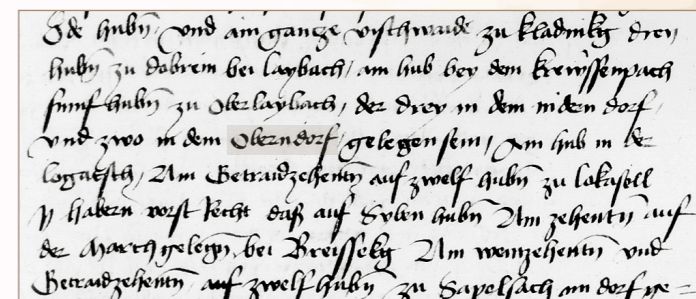 Ode hubn, vnd ain gancze vischwaide zu kladnikg dreu
hubn zu dobrein bei laybach, ain hub bey dem krewssenpach
funnf hubn zu Oberlaybach, der drey in dem nidern dorf,
vnd zwo in dem Oberndorf, gelegen sein, Ain hub in der
logatsch, Ain Getraidzehentn auf zwelf hubn zu lokasell
habern vorst Recht das auf Syben hubn Ain zehentn auf
der March gelegn, bei Breissekg Ain weinzehentn vnd
Getraidzehentn, auf zwelf hubn zu Sapelsach im dorf ge=